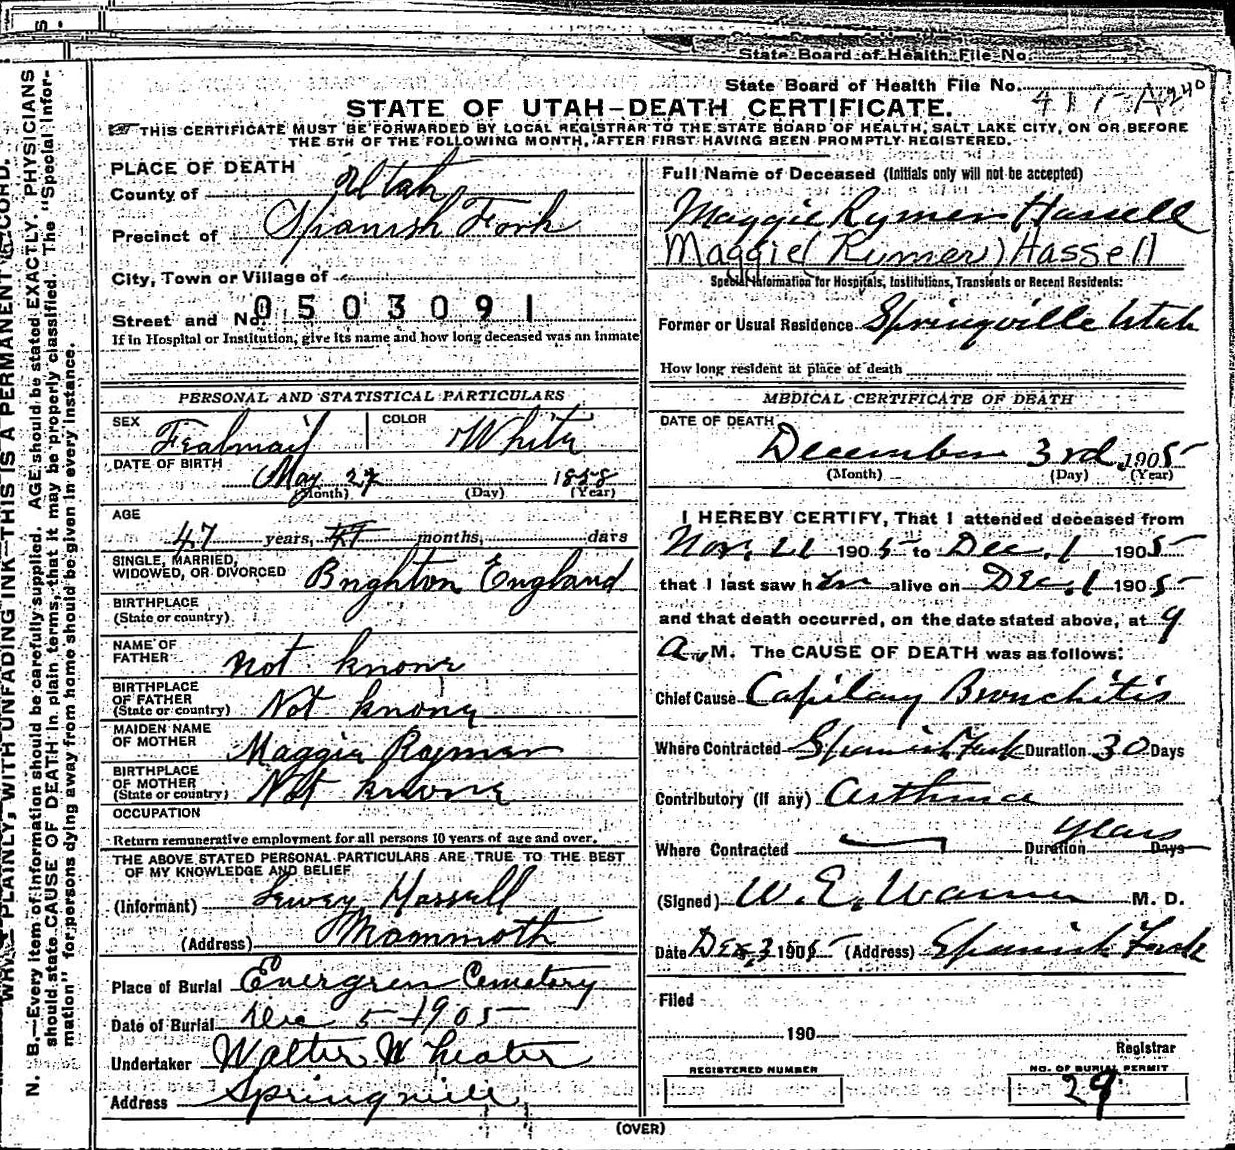 State Board of Health File No.
State Board of Health File No. 417-A 240
STATE OF UTAH—DEATH CERTIFICATE.
THIS CERTIFICATE MUST BE FORWARDED BY LOCAL REGISTRAR TO THE STATE BOARD OF HEALTH, SALT LAKE CITY, ON OR BEFORE
THE 5TH OF THE FOLLOWING MONTH, AFTER FIRST HAVING BEEN PROMPTLY REGISTERED.
PLACE OF DEATH
County of Utah
Precinct of Spanish Fork
City, Town or Village of
Street and No. 0503091
If in Hospital or Institution, give its name and how long deceased was an inmate
PERSONAL AND STATISTICAL PARTICULARS
SEX COLOR White
DATE OF BIRTH May 27 1858
(Month) (Day) (Year)
AGE
47 years, months, days
SINGLE, MARRIED,
WIDOWED, OR DIVORCED Brighton England
BIRTHPLACE
(State or country)
NAME OF
FATHER not known
BIRTHPLACE
OF FATHER
(State or country) Not known
MAIDEN NAME
OF MOTHER Maggie Raymer
BIRTHPLACE
OF MOTHER
(State or country) Not known
OCCUPATION
Return remunerative employment for all persons 10 years of age and over.
THE ABOVE STATED PERSONAL PARTICULARS ARE TRUE TO THE BEST
OF MY KNOWLEDGE AND BELIEF
(Informant) Hassell
(Address) Mammoth
Place of Burial Evergren Cemetery
Date of Burial Dec 5-1905
Undertaker Walter Wheater
Address
Full Name of Deceased (Initials only will not be accepted)
Maggie Rymer Hassell
Maggie (Rymer) Hassell
Special Information for Hospitals, Institutions, Transients or Recent Residents:
Former or Usual Residence Springville Utah
How long resident at place of death
MEDICAL CERTIFICATE OF DEATH
DATE OF DEATH
December 3rd, 1905
(Month) (Day) (Year)
I HEREBY CERTIFY, That I attended deceased from
Nov. 21 1905 to Dec. 1 1905
that I last saw her alive on Dec. 1 1905
and that death occurred, on the date stated above, at 9
a. M. The CAUSE OF DEATH was as follows:
Chief Cause Capilary Bronchitis
Where Contracted Spanish Fork Duration 30 Days
Contributory (if any) Asthma
Where Contracted Duration years Days
(Signed) W. E. Warner M. D.
Date Dec. 3 1905 (Address) Spanish Fork
Filed
190
Registrar
REGISTERED NUMBER NO. OF BURIAL PERMIT
29
(OVER)
PLAINLY, WITH UNFADING INK—THIS IS A PERMANENT RECORD.
N. B.—Every item of information should be carefully supplied. AGE should be stated EXACTLY. PHYSICIANS
should state CAUSE OF DEATH in plain terms, that it may be properly classified. The "Special Infor-
mation" for persons dying away from home should be given in every instance.